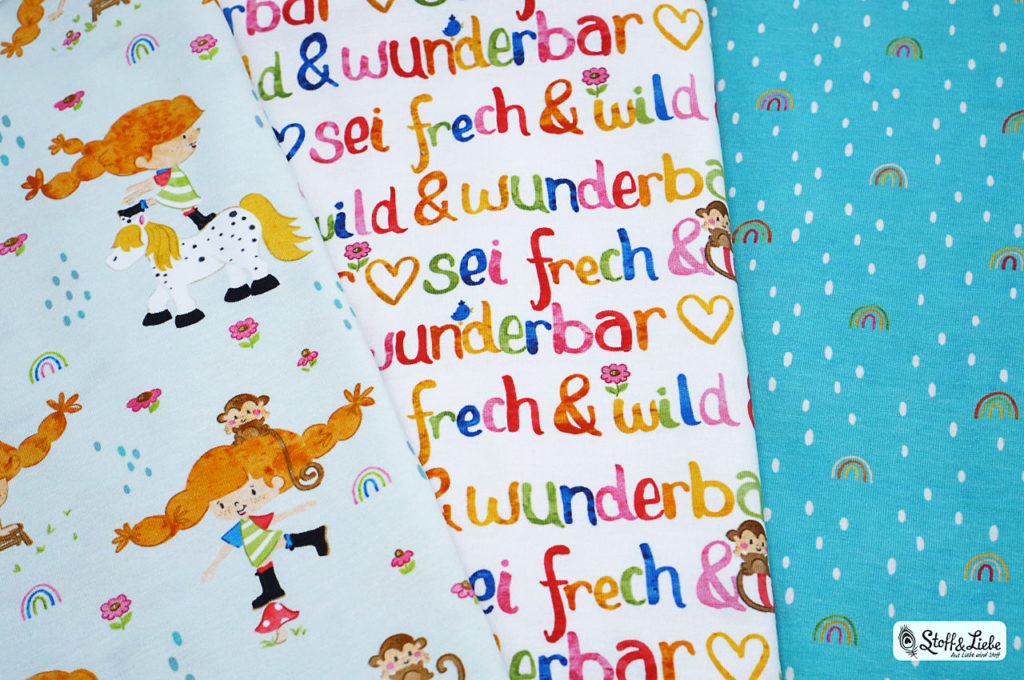 rbar sei fre
ld & wunderbar
sei frech & wild
wild & wunderbar
sei frech &
wunderbar
frech & wild
& wunderba
sei frech &
wunderbar
Stoff & Liebe
Aus Liebe wird Stoff